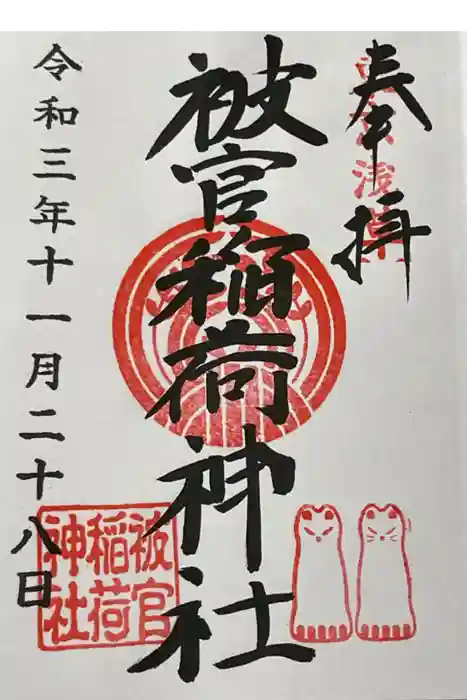 奉拝
東京浅草
被官稲荷神社
令和三年十一月二十八日
被官
稲荷
神社